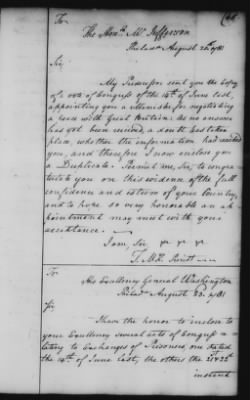 To
The Honble Mr Jefferson
Philada August 22d 1781
Sir,
My Predecessor sent you the Copy
of a vote of Congress of the 14th of June last,
appointing you a Minister for negotiating
a Peace with Great Britain: As no answer
has yet been received, a doubt has taken
place, whether the information had reached
you, and therefore I now enclose you
a Duplicate. Permit me, Sir, to congra-
tulate you on this evidence of the full
confidence and esteem of your Country,
and to hope so very honorable an ap-
pointment may meet with your
acceptance.
I am, Sir,
T. M:K. Presidt
To
His Excellency General Washington
Philada August 23. 1781
Sir
I have the honor to inclose to
your Excellency several acts of Congress re-
lating to Exchanges of Prisoners, one dated
the 14th of June last, the others the 21st & 22d
instant